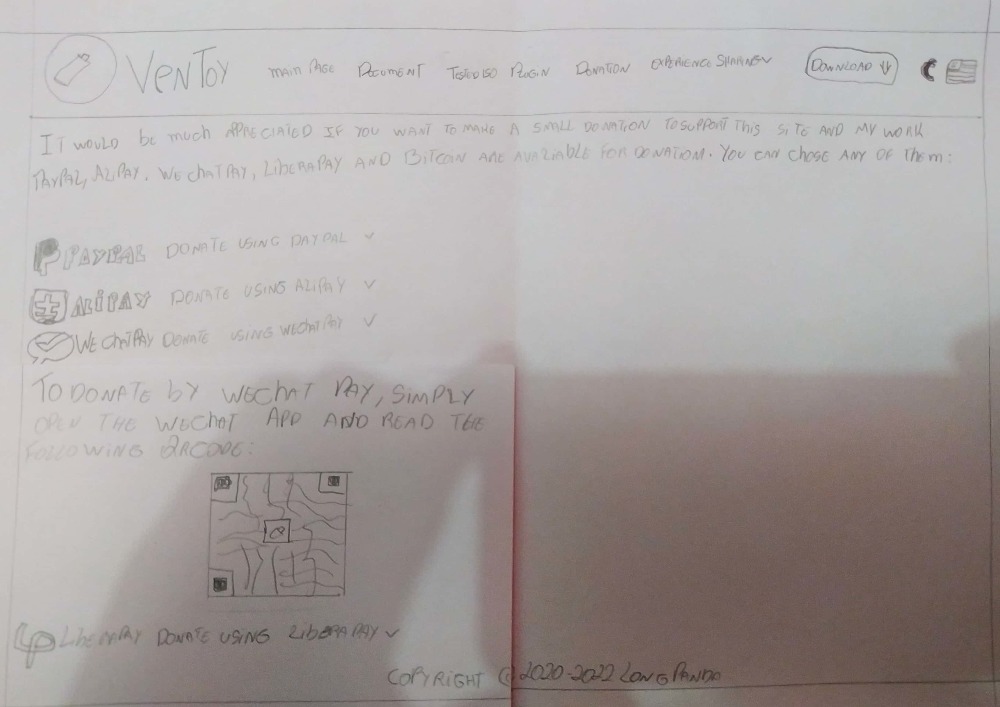 VenToy main Page Document Tested ISO Plugin Donation Experience Sharing Download
It would be much appreciated if you want to make a small donation to support this site and my work
PayPal, Alipay, WeChatPay, Liberapay and Bitcoin are avaliable for donation. You can chose any of them:
PayPal Donate using PayPal
AliPay Donate using AliPay
WeChatPay Donate using WeChatPay
To donate by WeChat Pay, simply
open the WeChat App and read the
following QRcode:
LiberaPay Donate using LiberaPay
Copyright © 2020-2022 LongPanda